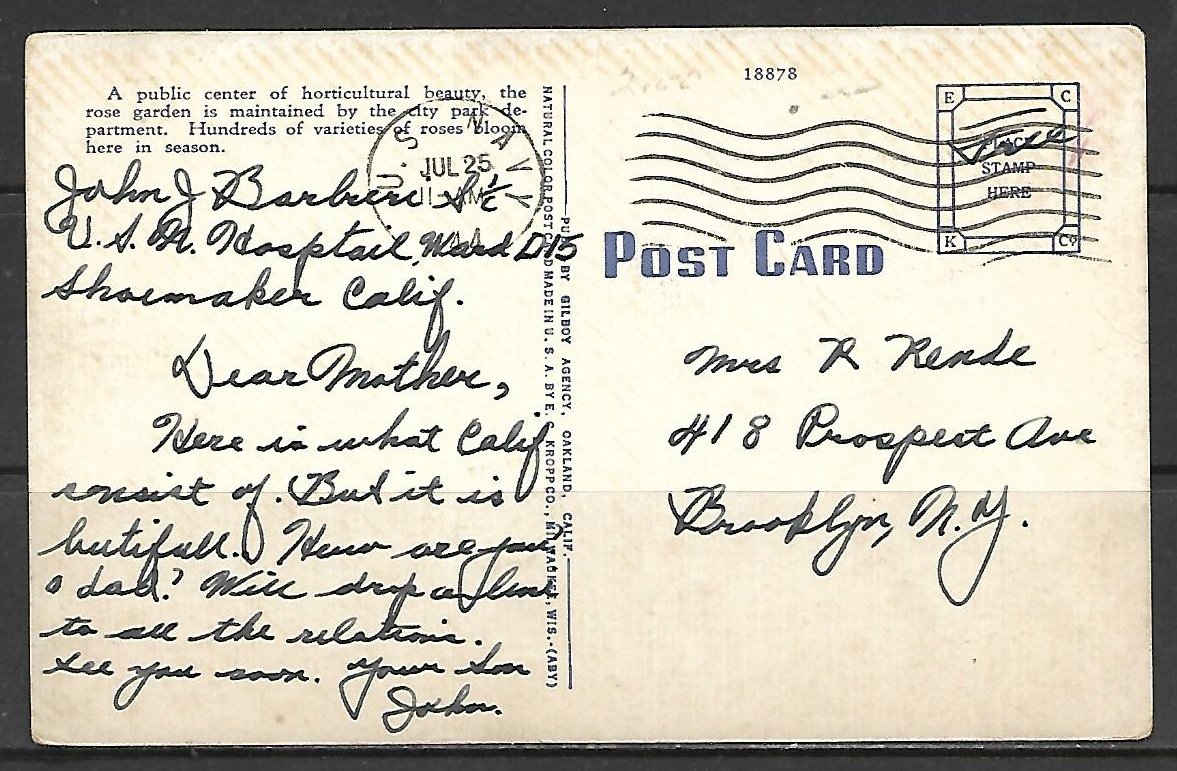 18878
A public center of horticultural beauty, the
rose garden is maintained by the city park de-
partment. Hundreds of varieties of roses bloom
here in season.
John J Barbieri S 1/c
U. S. N. Hosptail Ward D15
Shoemaker Calif.
Dear Mother,
Here is what Calif
consist of. But it is
butifull. How are you
& dad? Will drop a line
to all the relations.
See you soon. Your Son
John.
U. S. NAVY
JUL 25
11 AM
NATURAL COLOR POST CARD MADE IN U. S. A. BY E. C. KROPP CO., MILWAUKEE, WIS.-(ABY)
PUB. BY GILBOY AGENCY, OAKLAND, CALIF.
POST CARD
E C
Free
PLACE
STAMP
HERE
K Co
Mrs R Rende
418 Prospect Ave
Brooklyn, N.Y.